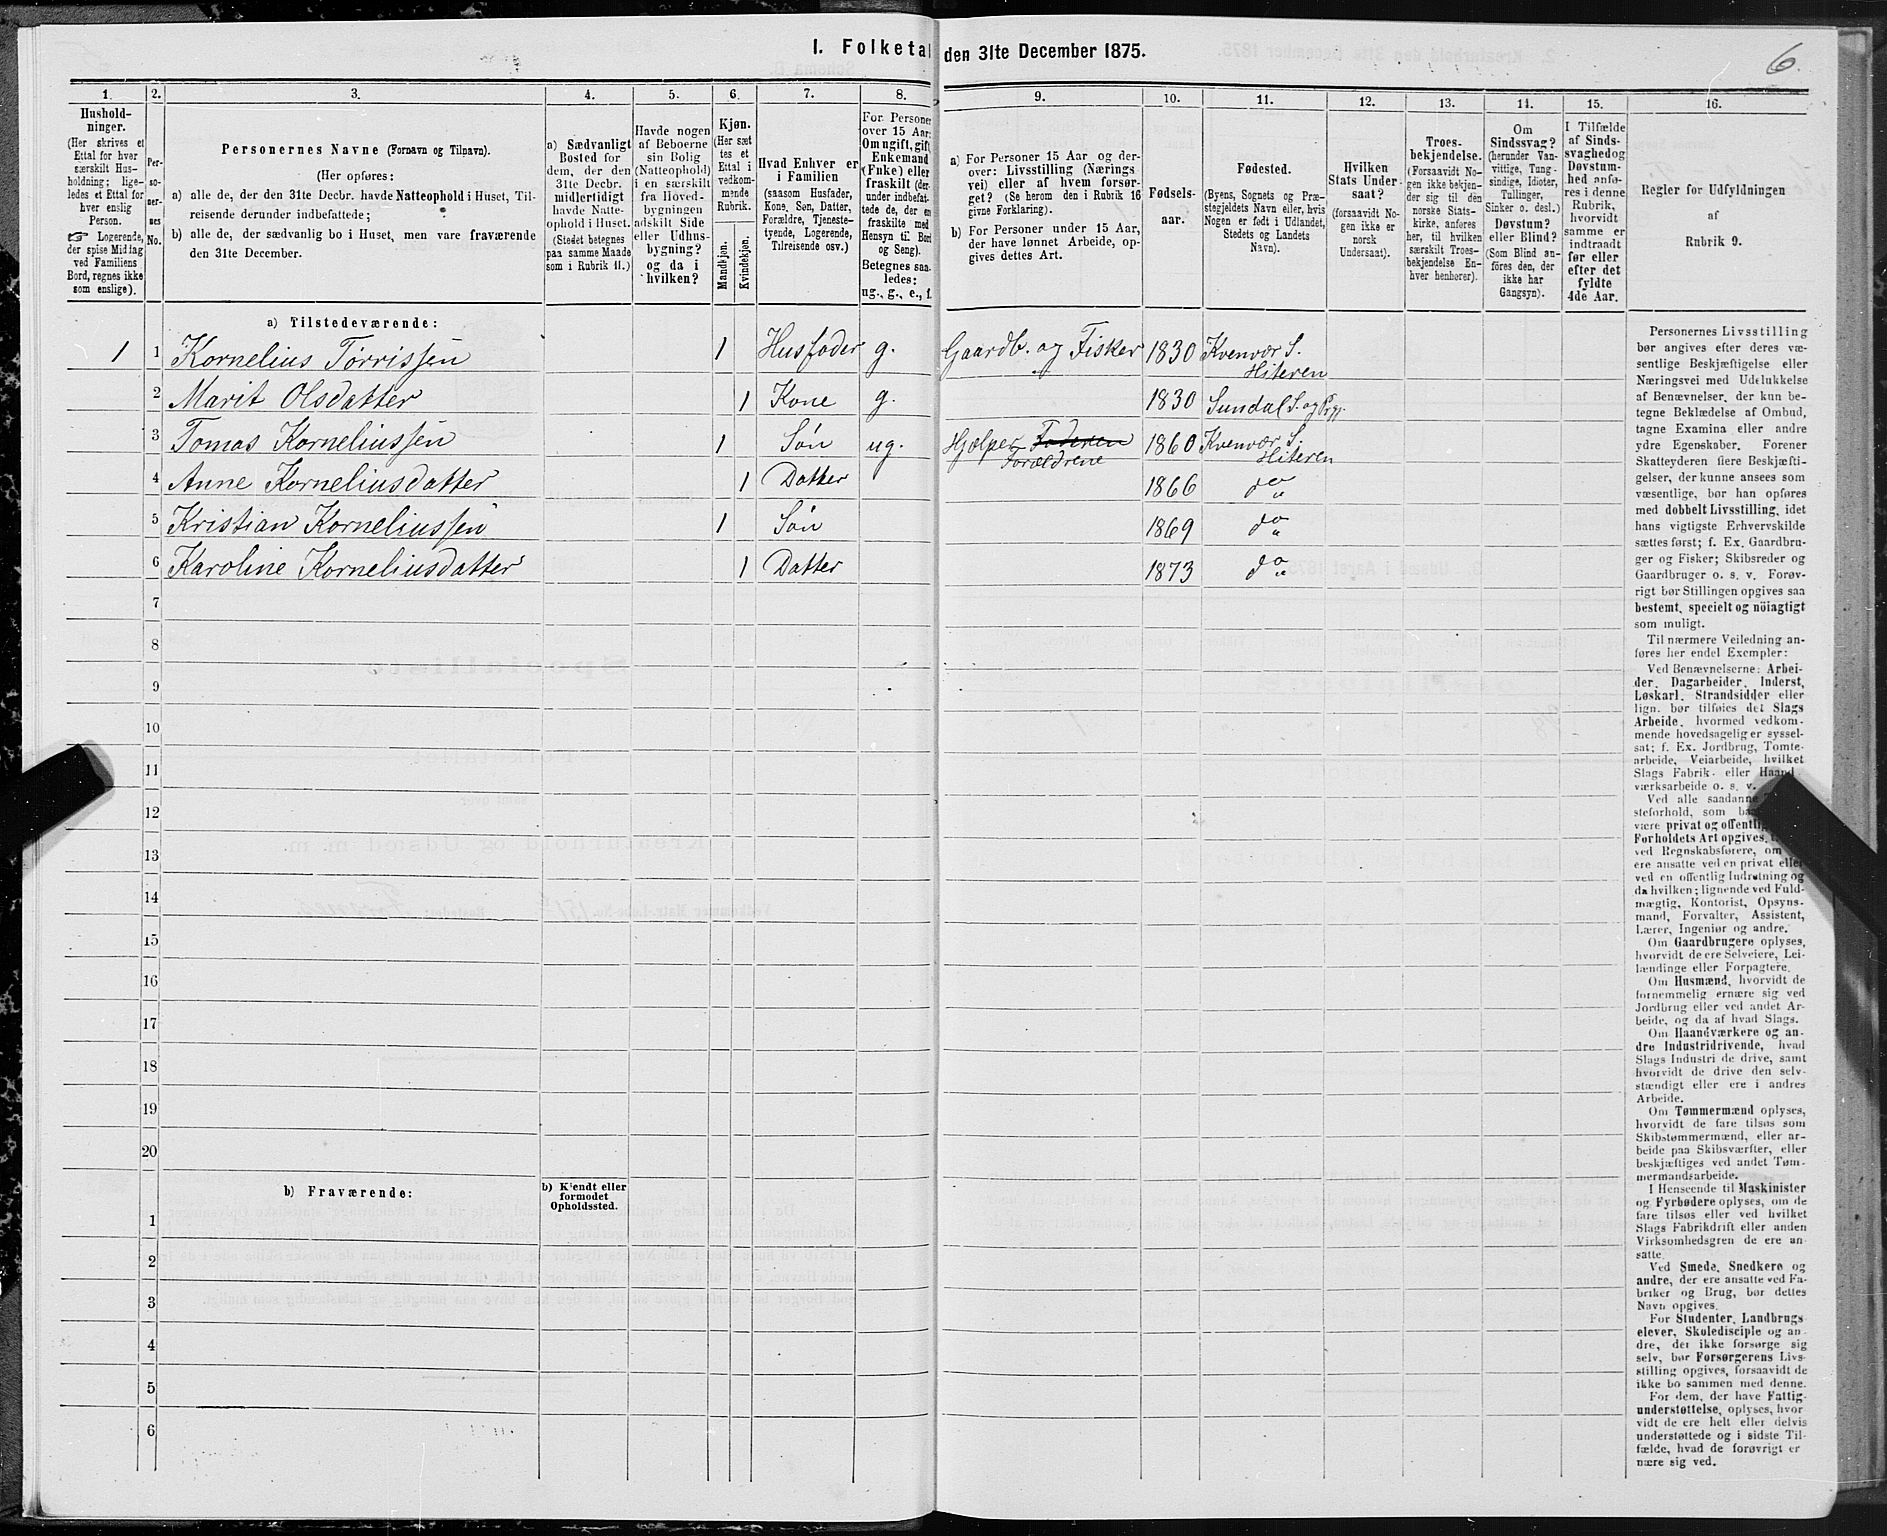 I. Folketal den 31te December 1875.
6.
1. 2. 3. 4. 5. 6. 7. 8. 9. 10. 11. 12. 13. 14. 15. 16.
Hushold-
ninger.
(Her skrives et
Ettal for hver
særskilt Hus-
holdning; lige-
ledes et Ettal for
hver enslig
Person.
☞ Logerende,
der spise Middag
ved Familiens
Bord, regnes ikke
som enslige).
Per-
so-
ner-
nes
No.
Personernes Navne (Fornavn og Tilnavn).
(Her opføres:
a) alle de, der den 31te Decbr. havde Natteophold i Huset, Til-
reisende derunder indbefattede;
b) alle de, der sædvanlig bo i Huset, men vare fraværende
den 31te December.
a) Sædvanligt
Bosted for
dem, der den
31te Decbr.
midlertidigt
havde Natte-
ophold i Huset.
(Stedet betegnes
paa samme Maade
som i Rubrik 11.)
Havde nogen
af Beboerne
sin Bolig
(Natteophold)
i en særskilt
fra Hoved-
bygningen
adskilt Side
eller Udhus-
bygning?
og da i
hvilken?
Kjøn.
(Her sæt
tes et
Ettal i
vedkom-
mende
Rubrik.
Mandkjøn.
Kvindekjøn.
Hvad Enhver er
i Familien
(saasom Husfader,
Kone, Søn, Datter,
Forældre, Tjeneste-
tyende, Logerende,
Tilreisende osv.)
For Personer
over 15 Aar:
Om ugift, gift,
Enkemand
(Enke) eller
fraskilt (der-
under indbefat-
tede de, der en
fraskilte med
Hensyn til Bord
og Seng).
Betegnes saa-
ledes:
ug., g., e., f.
a) For Personer 15 Aar og der-
over: Livsstilling (Nærings
vei) eller af hvem forsør-
get? (Se herom den i Rubrik 16
givne Forklaring).
b) For Personer under 15 Aar,
der have lønnet Arbeide, op-
gives dettes Art.
Fødsels-
aar.
Fødested.
(Byens, Sognets og Præ-
stegjeldets Navn eller, hvis
Nogen er født i Udlandet,
Stedets og Landets
Navn).
Hvilken
Stats Under-
saat?
(forsaavidt No-
gen ikke er
norsk
Undersaat).
Troes-
bekjendelse.
(Forsaavidt No-
gen ikke bekjen-
der sig til den
norske Stats-
kirke, anføres
her, til hvilken
særskilt Troes-
bekjendelse En-
hver henhører).
Om
Sindssvag?
(herunder Van-
vittige, Tung-
sindige, Idioter,
Tullinger,
Sinker o. desl.)
Døvstum?
eller Blind?
(Som Blind an-
føres den, der
ikke har
Gangsyn).
I Tilfælde
af Sinds-
svaghed og
Døvstum-
hed anfø-
res i denne
Rubrik,
hvorvidt
samme er
indtraadt
før eller
efter det
fyldte
4de Aar.
Regler for Udfyldningen
af
Rubrik 9.
a) Tilstedeværende:
1 1 Kornelius Torrissen 1 Husfader g. Gaardb. og Fisker 1830 Kvenvær S.
Hiteren
2 Marit Olsdatter 1 Kone g. 1830 Sundal S. og Prgj.
3 Tomas Korneliussen 1 Søn ug. Hjælper Faderen 1860 Kvenvær S.
Forældrene Hiteren
4 Anne Korneliusdatter 1 Datter 1866 do
5 Kristian Korneliussen 1 Søn 1869 do
6 Karoline Korneliusdatter 1 Datter 1873 do
7
8
9
10
11
12
13
14
15
16
17
18
19
20
b) Fraværende:
b) Kjendt eller
formodet
Opholdssted.
1
2
3
4
5
6
Personernes Livsstilling
bør angives efter deres væ-
sentlige Beskjæftigelse eller
Næringsvei med Udelukkelse
af Benævnelser, der kun be-
tegne Beklædelse af Ombud,
tagne Examina eller andre
ydre Egenskaber. Forener
Skatteyderen flere Beskjæfti-
gelser, der kunne ansees som
væsentlige, bør han opføres
med dobbelt Livsstilling, idet
hans vigtigste Erhvervskilde
sættes først; f. Ex. Gaardbru-
ger og Fisker; Skibsreder og
Gaardbruger o. s. v. Forøv-
rigt bør Stillingen opgives saa
bestemt, specielt og nöiagtigt
som muligt.
Til nærmere Veiledning an-
føres her endel Exempler:
Ved Benævnelserne: Arbei-
der, Dagarbeider, Inderst,
Løskarl, Strandsidder eller
lign. bør tilføies det Slags
Arbeide, hvormed vedkom-
mende hovedsagelig er syssel-
sat; f. Ex. Jordbrug, Tomte-
arbeide, Veiarbeide, hvilket
Slags Fabrik- eller Haand
værksarbeide o. s. v.
Ved alle saadanne
steforhold, som
være privat og offentlig
Forholdets Art opgives,
ved Regnskabsførere, om
ere ansatte ved en privat eller
ved en offentlig Indretning og
da hvilken; lignende ved Fuld-
mægtig, Kontorist, Opsyns-
mand, Forvalter, Assistent,
Lærer, Ingeniør og andre.
Om Gaardbrugere oplyses,
hvorvidt de ere Selveiere, Lei-
lændinge eller Forpagtere.
Om Husmænd, hvorvidt de
fornemmelig ernære sig ved
Jordbrug eller ved andet Ar-
beide, og da af hvad Slags.
Om Haandværkere og an-
dre Industridrivende, hvad
Slags Industri de drive, samt
hvorvidt de drive den selv-
stændigt eller ere i andres
Arbeide.
Om Tømmermænd oplyses,
hvorvidt de fare tilsøs som
Skibstømmermænd, eller ar-
beide paa Skibsværfter, eller
beskjæftiges ved andet Tøm-
mermandsarbeide.
I Henseende til Maskinister
og Fyrbødere oplyses, om de
fare tilsøs eller ved hvilket
Slags Fabrikdrift eller anden
Virksomhedsgren de ere an-
satte.
Ved Smede, Snedkere og
andre, der ere ansatte ved Fa-
briker og Brug, bør dettes
Navn opgives.
For Studenter, Landbrugs
elever, Skoledisciple og an-
dre, der ikke forsørge sig
selv, bør Forsørgerens Livs-
stilling opgives, forsaavidt de
ikke bo sammen med denne.
For dem, der have Fattig-
understøttelse, oplyses, hvor
vidt de ere helt eller delvis
understøttede og i sidste Til-
fælde, hvad de forøvrigt er
nære sig ved.